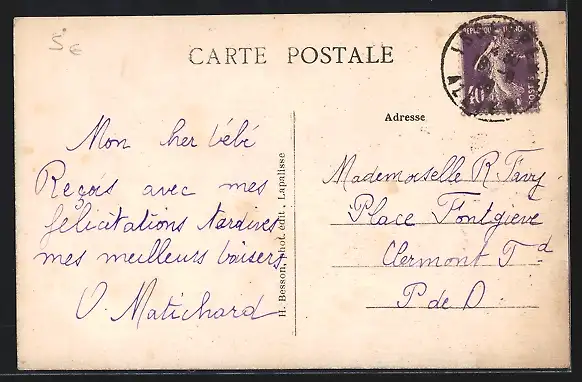 5€
CARTE POSTALE
Adresse
Mon her bébé
Reçois avec mes
félicitations tardives
mes meilleurs baisers
V. Matichard
H. Besson, phot. édit., Lapalisse
Mademoiselle R. Favy
Place Fontgieve
Clermont Fd
P de D